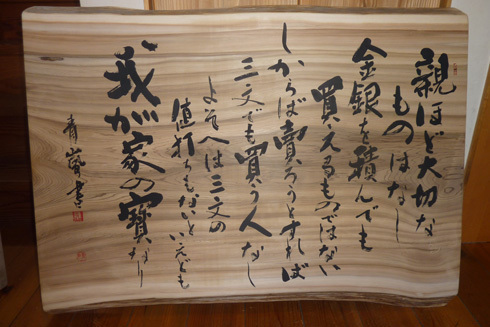 親ほど大切な
ものはなし
金銀を積んでも
買えるものではない
しからば賣ろうとすれば
三文でも買う人なし
よそへは三文の
値打ちもないといえども
我が家の寶なり
青藝書